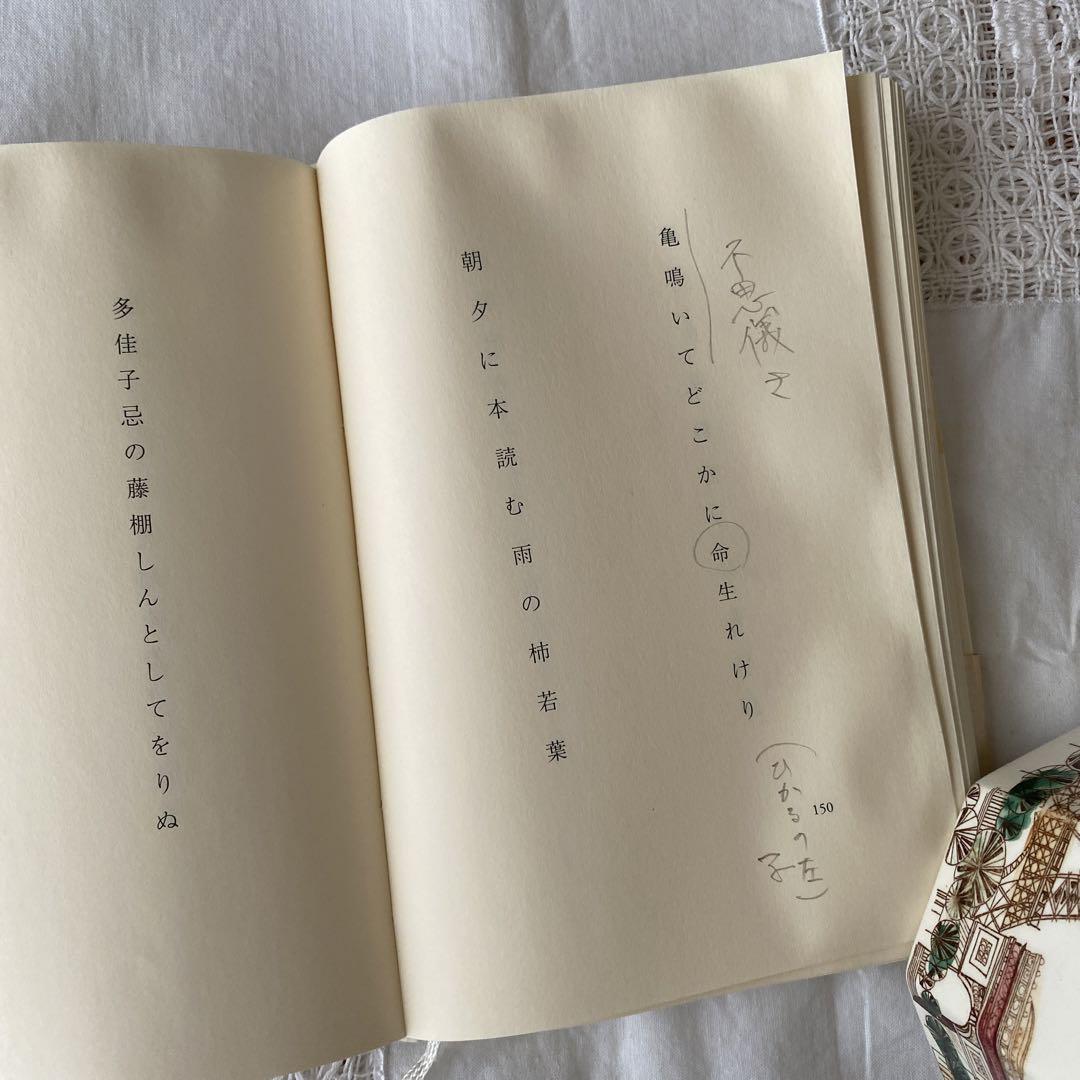 不思儀さ
亀鳴いてどこかに命生れけり
(ひかるの左)
子
150
朝夕に本読む雨の柿若葉
多佳子忌の藤棚しんとしてをりぬ